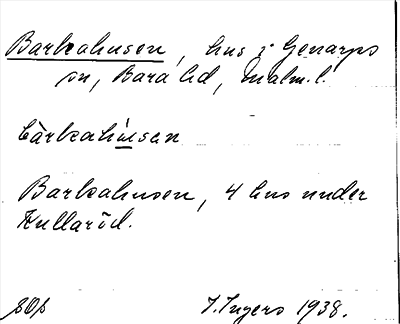 Barkahusen, hus i Genarps
sn, Bara hd, Malm. l.
bàrkahùsen
Barkahusen, 4 hus under
Kullaröd.
SOß
I. Ingers 1938.